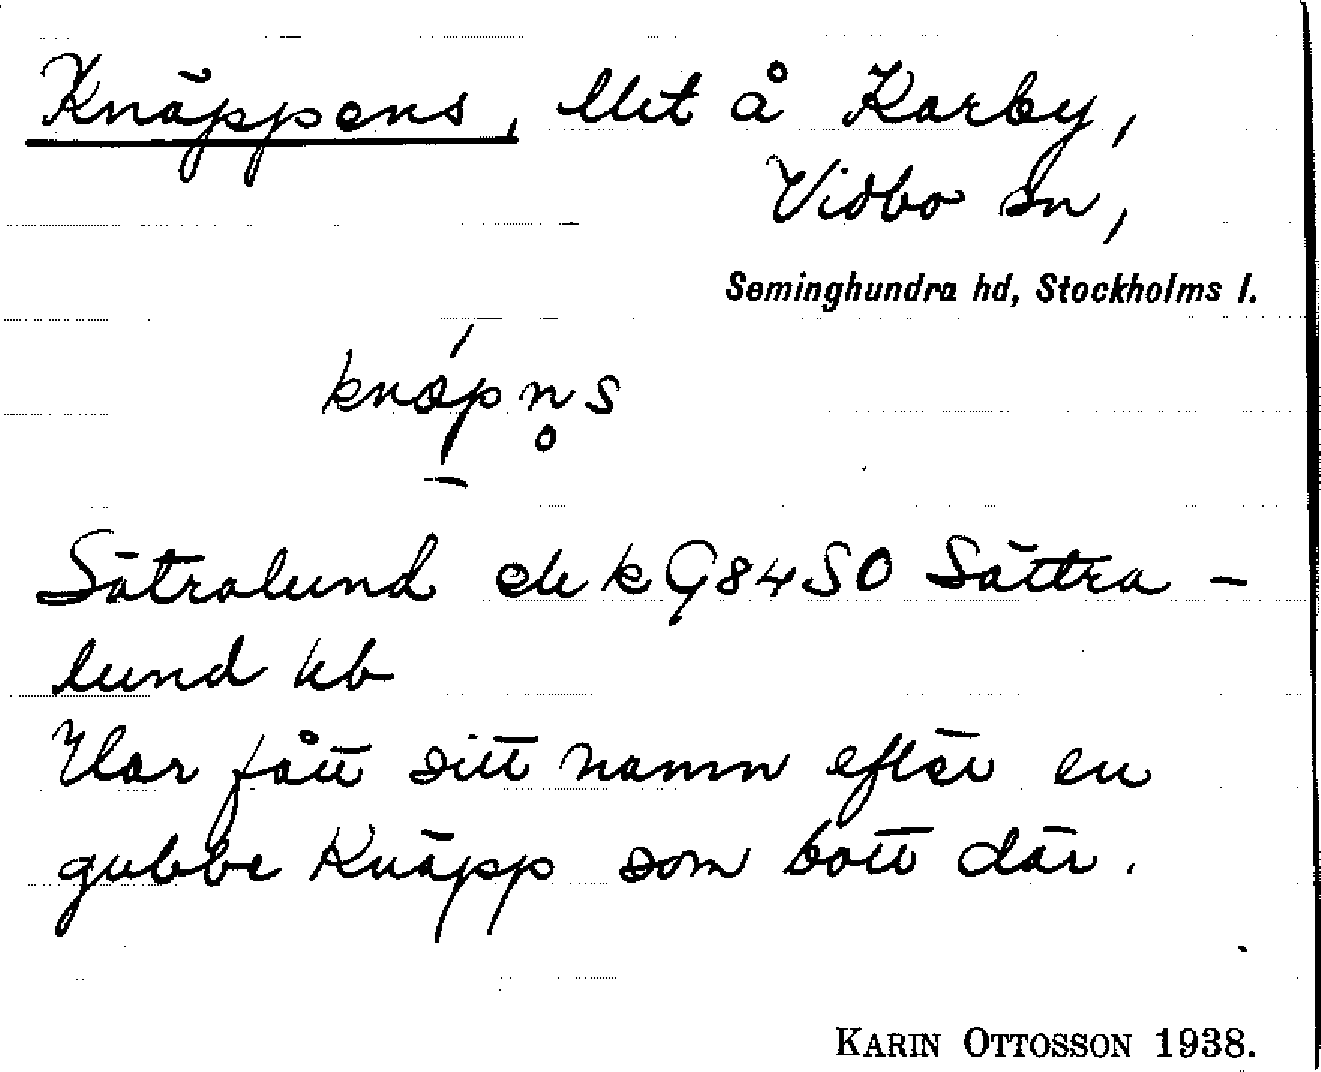 Knäppens, llet å Karby,
Vidbo sn,
Seminghundra hd, Stockholms l.
knä́pn̥s
Sätralund ek k G84SO Sättra-
lund kb
Har fått sitt namn efter en
gubbe Knäpp som bott där.
KARIN OTTOSSON 1938.